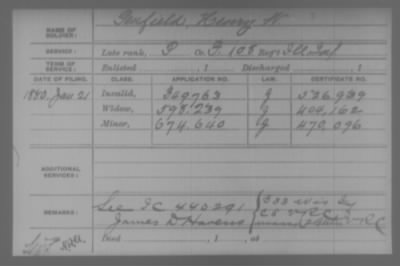 NAME OF SOLDIER: Penfield, Henry N.
SERVICE: Late rank, P Co. F. 108 Reg't Ill Inf
TERM OF SERVICE: Enlisted , 1 Discharged , 1
DATE OF FILING. CLASS. APPLICATION NO. LAW. CERTIFICATE NO.
1880, Jan 21 Invalid, 349763 G 536,939
Widow, 598.239 G 404,162
Minor, 674.640 G 470,096
ADDITIONAL SERVICES:
REMARKS: See I C 440291
James D Havens
Died , 1 , at